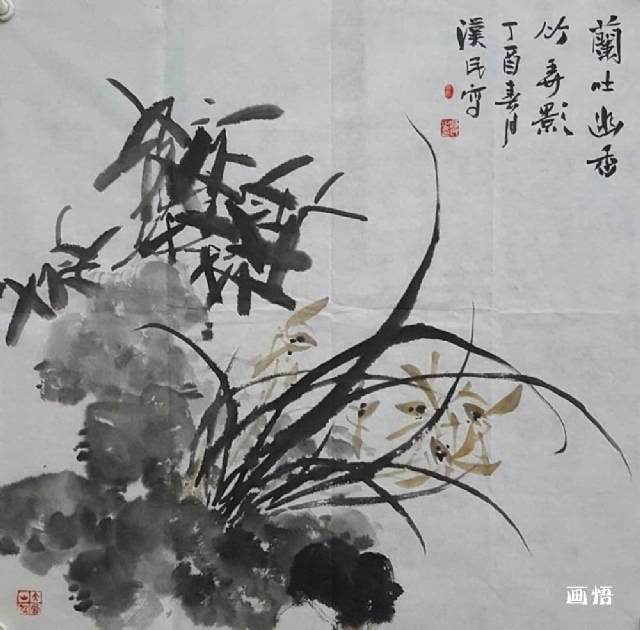 蘭吐幽香
竹弄影
丁酉春月
漢民写
画悟